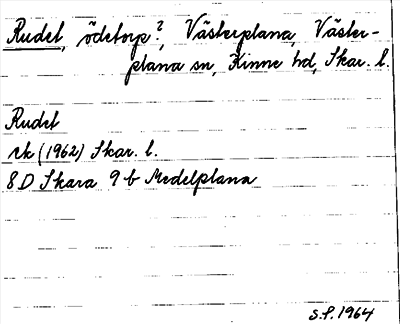 Rudet, ödetorp?, Västerplana, Väster-
plana sn, Kinne hd, Skar. l.
Rudet
rk (1962) Skar. l.
8 D Skara 9 b Medelplana
S.P. 1964